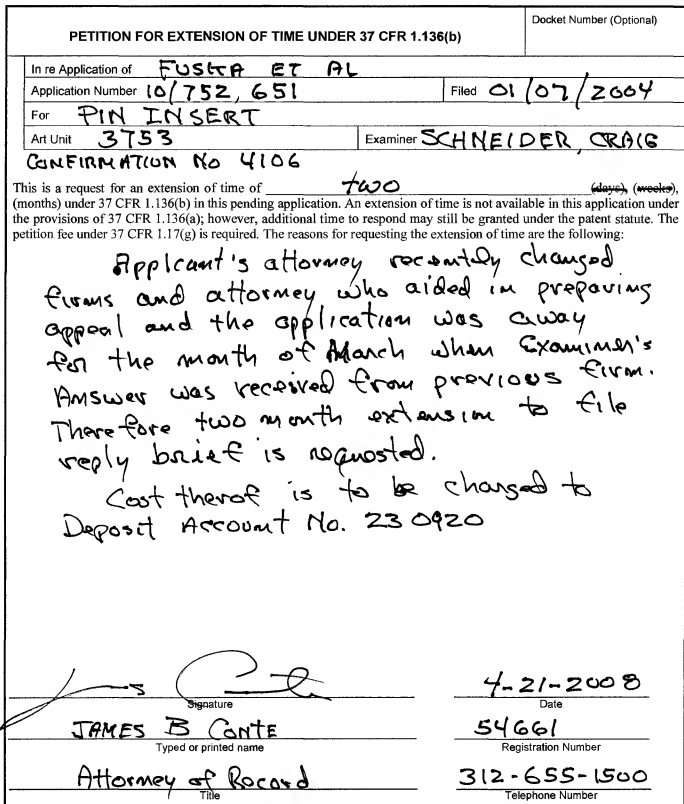 PETITION FOR EXTENSION OF TIME UNDER 37 CFR 1.136(b)
Docket Number (Optional)
In re Application of FUSKA ET AL
Application Number 10/752,651 Filed 01/07/2004
For PIN INSERT
Art Unit 3753 Examiner SCHNEIDER, CRAIG
CONFIRMATION No 4106
This is a request for an extension of time of two (days), (weeks),
(months) under 37 CFR 1.136(b) in this pending application. An extension of time is not available in this application under
the provisions of 37 CFR 1.136(a); however, additional time to respond may still be granted under the patent statute. The
petition fee under 37 CFR 1.17(g) is required. The reasons for requesting the extension of time are the following:
Applcant's attorney recently changed
firms and attorney who aided in preparing
appeal and the application was away
for the month of March when Examiner's
Answer was received from previous firm.
Therefore two month extension to file
reply brief is requested.
Cost therof is to be charged to
Deposit Account No. 23 0920
Signature
4-21-2008
Date
JAMES B CONTE
Typed or printed name
54661
Registration Number
Attorney of Record
Title
312-655-1500
Telephone Number